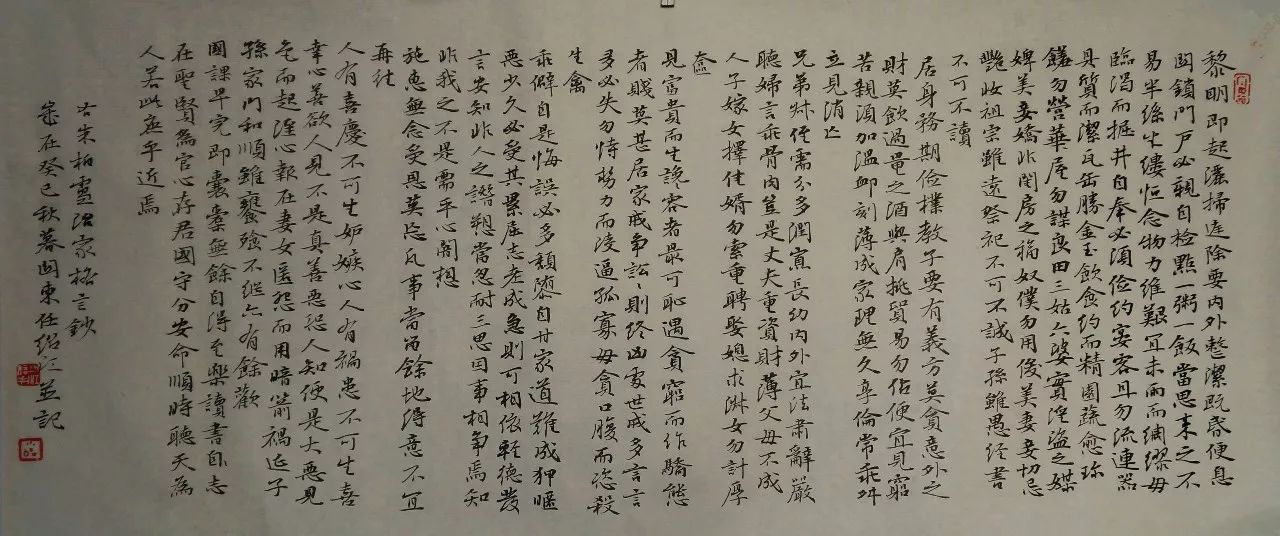 黎明即起灑掃庭除要内外整潔既昏便息
関鎖門戸必親自检點一粥一飯當思来之不
易半絲半縷恒念物力維艱宜未雨而綢繆毋
臨渴而掘井自奉必須俭约宴客且勿流連器
具質而潔瓦缶勝金玉飲食约而精園蔬愈珍
饈勿營華屋勿謀良田三姑六婆實淫盗之媒
婢美妾嬌非閨房之福奴僕勿用俊美妻妾切忌
艷妝祖宗雖遠祭祀不可不誠子孫雖愚经書
不可不讀
居身務期俭樸教子要有義方莫貪意外之
財莫飲過量之酒與肩挑貿易勿佔便宜見窮
苦親須加温卹刻薄成家理無久享倫常乖舛
立見消亡
兄弟叔侄需分多潤寡長幼内外宜法肅辭嚴
聽婦言乖骨肉豈是丈夫重資財薄父母不成
人子嫁女擇佳婿勿索重聘娶媳求淑女勿計厚
奩
見富貴而生諂容者最可恥遇貧窮而作驕態
者賤莫甚居家戒争訟訟則终凶處世戒多言言
多必失勿恃势力而凌逼孤寡毋貪口腹而恣殺
生禽
乖僻自是悔誤必多頹隳自甘家道難成狎暱
惡少久必受其累屈志老成急則可相依輕德發
言安知非人之譖愬當忍耐三思因事相争焉知
非我之不是需平心闇想
施惠無念受恩莫忘凡事當留餘地得意不宜
再往
人有喜慶不可生妒嫉心人有禍患不可生喜
幸心善欲人見不是真善惡恐人知便是大惡見
色而起淫心報在妻女匿怨而用暗箭禍延子
孫家門和順雖饔飧不继亦有餘歡
國課早完即囊橐無餘自得至樂讀書自志
在聖賢為官心存君國守分安命順時聽天為
人若此庶乎近焉
右朱柏廬治家格言鈔
歲在癸巳秋暮関東任绍江並記